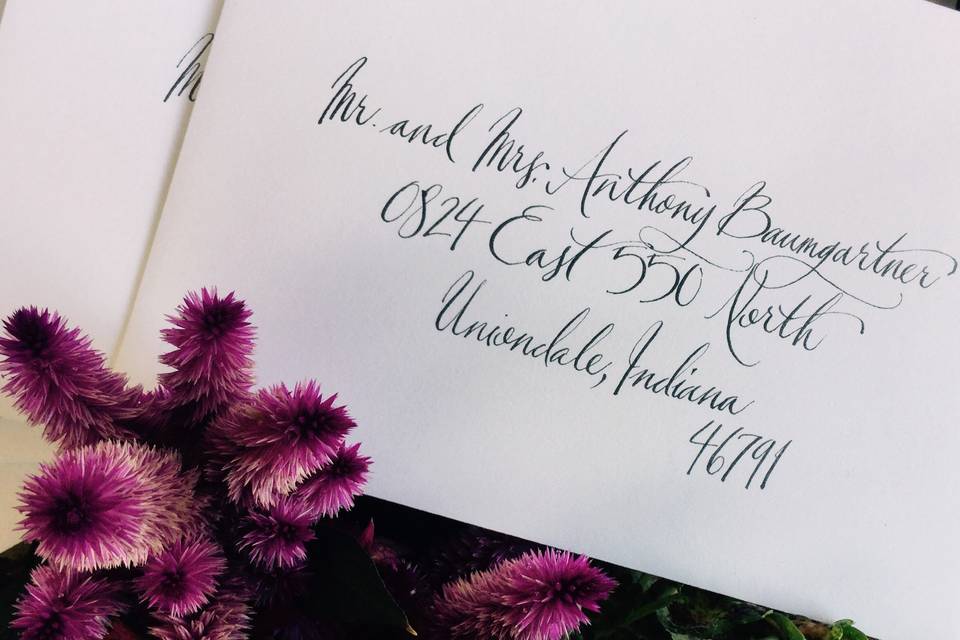 M
Mr. and Mrs. Anthony Baumgartner
0824 East 550 North
Uniondale, Indiana
46791